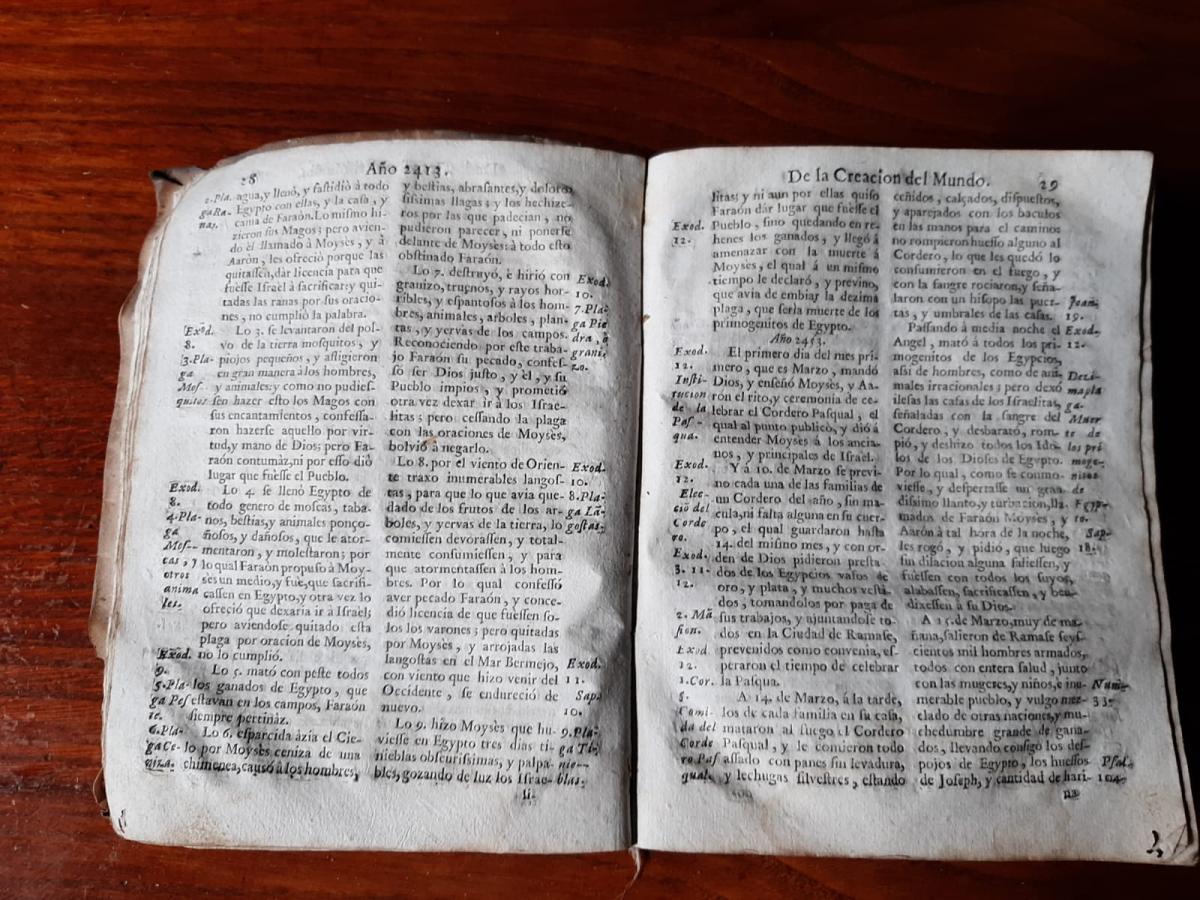 28
Año 2413.
2. Pla.
ga Ra-
nas.
Exod.
8.
3. Pla-
ga
Moſ-
quitos
Exod.
8.
4. Pla-
ga
Moſ--
cas, y
otros
anima
les.
Exod.
9.
5. Pla-
ga Peſ
te.
6. Pla-
ga Ce-
niza.
agua, y llenó, y faſtidiò à todo
Egypto con ellas, y la caſa, y
cama de Faraón. Lo miſmo hi-
zieron ſus Magos; pero avien-
do èl llamado à Moysès, y à
Aaròn, les ofreciò porque las
quitaſſen, dar licencia para que
fueſſe Iſrael à ſacrificar: y qui-
tadas las ranas por ſus oracio-
nes, no cumpliò la palabra.
Lo 3. ſe levantaron del pol-
vo de la tierra moſquitos, y
piojos pequeños, y afligieron
en gran manera à los hombres,
y animales: y como no pudieſ-
ſen hazer eſto los Magos con
ſus encantamientos, confeſſa-
ron hazerſe aquello por vir-
tud, y mano de Dios; pero Fa-
raón contumàz, ni por eſſo diò
lugar que fueſſe el Pueblo.
Lo 4. ſe llenó Egypto de
todo genero de moſcas, taba-
nos, beſtias, y animales ponço-
ñoſos, y dañoſos, que le ator-
mentaron, y moleſtaron; por
lo qual Faraón propuſo à Moy-
sès un medio, y fue, que ſacrifi-
caſſen en Egypto, y otra vez lo
ofreciò que dexaria ir à Iſrael;
pero aviendoſe quitado eſta
plaga por oracion de Moysès,
no lo cumpliò.
Lo 5. mató con peſte todos
los ganados de Egypto, que
eſtavan en los campos, Faraón
ſiempre pertinàz.
Lo 6. eſparcida àzia el Cie-
lo por Moysès ceniza de una
chimenea, cauſó à los hombres,
y beſtias, abraſantes, y doloro
ſiſsimas llagas; y los hechize-
ros por las que padecian, no
pudieron parecer, ni ponerſe
delante de Moysès: à todo eſto
obſtinado Faraón.
Lo 7. deſtruyó, è hirió con
granizo, truenos, y rayos hor-
ribles, y eſpantoſos à los hom-
bres, animales, arboles, plan-
tas, y yervas de los campos.
Reconociendo por eſte traba-
jo Faraón ſu pecado, confeſ-
ſó ſer Dios juſto, y èl, y ſu
Pueblo impios, y prometió
otra vez dexar ir à los Iſrae-
litas; pero ceſſando la plaga
con las oraciones de Moysès,
bolviò à negarlo.
Lo 8. por el viento de Orien-
te traxo inumerables langoſ-
tas, para que lo que avia que-
dado de los frutos de los ar-
boles, y yervas de la tierra, lo
comieſſen devoraſſen, y total-
mente conſumieſſen, y para
que atormentaſſen à los hom-
bres. Por lo qual confeſſó
aver pecado Faraón, y conce-
dió licencia de que fueſſen ſo-
los los varones; pero quitadas
por Moysès, y arrojadas las
langoſtas en el Mar Bermejo,
con viento que hizo venir del
Occidente, ſe endureciò de
nuevo.
Lo 9. hizo Moysès que hu-
vieſſe en Egypto tres dias ti-
nieblas obſcuriſsimas, y palpa-
bles, gozando de luz los Iſrae-
li-
Exod.
10.
7. Pla-
ga Pie
dra, ò
grani-
zo.
Exod.
10.
8. Pla-
ga Lã-
goſtas.
Exod.
11.
Sap.
10.
9. Pla-
ga Ti-
nie--
blas.
De la Creacion del Mundo.
29
Exod.
12.
Exod.
12.
Inſti-
tucion
de la
Paſ--
qua.
Exod.
12.
Elec-
ciõ del
Corde
ro.
Exod.
3. 11.
12.
2. Mã
ſion.
Exod
12.
1. Cor.
5.
Comi-
da del
Corde
ro Paſ
qual.
litas; y ni aun por ellas quiſo
Faraón dàr lugar que fueſſe el
Pueblo, ſino quedando en re-
henes los ganados, y llegó à
amenazar con la muerte à
Moysès, el qual à un miſmo
tiempo le declaró, y previno,
que avia de embiar la dezima
plaga, que ſeria muerte de los
primogenitos de Egypto.
Año 2453.
El primero dia del mes pri-
mero, que es Marzo, mandó
Dios, y enſeñó Moysès, y Aa-
ron el rito, y ceremonia de ce-
lebrar el Cordero Paſqual, el
qual al punto publicó, y diò à
entender Moysès à los ancia-
nos, y principales de Iſrael.
Y à 10. de Marzo ſe previ-
no cada una de las familias de
un Cordero del año, ſin ma-
cula, ni falta alguna en ſu cuer-
po, el qual guardaron haſta
14. del miſmo mes, y con or-
den de Dios pidieron preſta-
dos de los Egypcios vaſos de
oro, y plata, y muchos veſti-
dos, tomandolos por paga de
ſus trabajos, y ajuntandoſe to-
dos en la Ciudad de Ramaſe,
prevenidos como convenia, eſ-
peraron el tiempo de celebrar
la Paſqua.
A 14. de Marzo, à la tarde,
los de cada familia en ſu caſa,
mataron al fuego el Cordero
Paſqual, y le comieron todo
aſſado con panes ſin levadura,
y lechugas ſilveſtres, eſtando
ceñidos, calçados, diſpueſtos,
y aparejados con los baculos
en las manos para el camino:
no rompieron hueſſo alguno al
Cordero, lo que les quedó lo
conſumieron en el fuego, y
con la ſangre rociaron, y ſeña-
laron con un hiſopo las puer-
tas, y umbrales de las caſas.
Paſſando à media noche el
Angel, mató à todos los pri-
mogenitos de los Egypcios,
aſsi de hombres, como de ani-
males irracionales; pero dexó
ileſas las caſas de los Iſraelitas,
ſeñaladas con la ſangre del
Cordero, y desbarató, rom-
pió, y deshizo todos los Ido-
los de los Dioſes de Egypto.
Por lo qual, como ſe conmo-
vieſſe, y deſpertaſſe un gran-
diſsimo llanto, y turbacion, lla-
mados de Faraón Moysès, y
Aaròn à tal hora de la noche,
les rogó, y pidió, que luego
ſin dilacion alguna ſalieſſen, y
fueſſen con todos los ſuyos,
alabaſſen, ſacrificaſſen, y ben-
dixeſſen à ſu Dios.
A 15. de Marzo, muy de ma-
ñana, ſalieron de Ramaſe ſeyſ-
cientos mil hombres armados,
todos con entera ſalud, junto
con las mugeres, y niños, è inu-
merable pueblo, y vulgo mez-
clado de otras naciones, y mu-
chedumbre grande de gana-
dos, llevando conſigo los deſ-
pojos de Egypto, los hueſſos
de Joſeph, y cantidad de hari-
na
Joan.
19.
Exod.
12.
Dezi-
ma pla
ga.
Muer
te de
los pri
moge-
nitos
de
Egyp-
to.
Sap.
18.
Num.
33.
Pſal.
104.